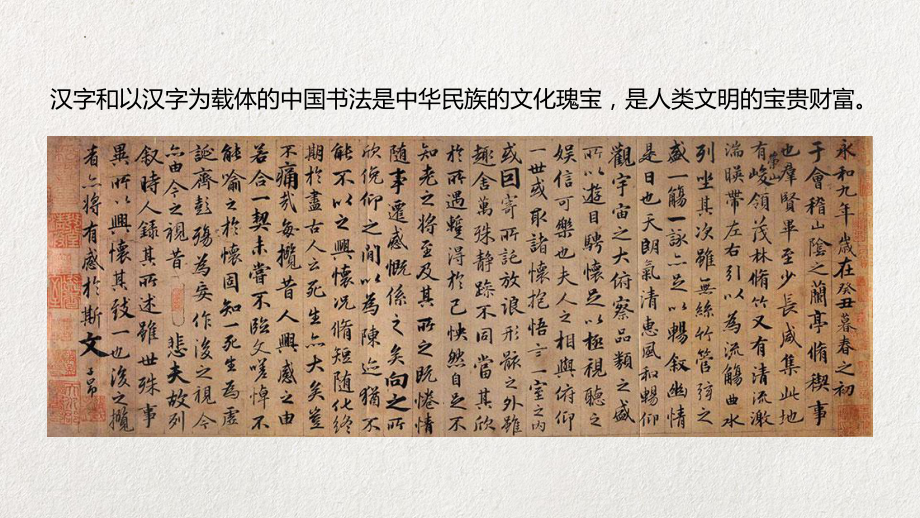 汉字和以汉字为载体的中国书法是中华民族的文化瑰宝，是人类文明的宝贵财富。
永和九年歲在癸丑暮春之初
于會稽山陰之蘭亭脩稧事
也羣賢畢至少長咸集此地
有崇山峻領茂林脩竹又有清流激
湍暎帶左右引以為流觴曲水
列坐其次雖無絲竹管弦之
盛一觴一詠亦足以暢叙幽情
是日也天朗氣清惠風和暢仰
觀宇宙之大俯察品類之盛
所以遊目騁懷足以極視聽之
娛信可樂也夫人之相與俯仰
一世或取諸懷抱悟言一室之內
或因寄所託放浪形骸之外雖
趣舍萬殊靜躁不同當其欣
於所遇蹔得於己怏然自足不
知老之將至及其所之既惓情
隨事遷感慨係之矣向之所
欣俛仰之閒以為陳迹猶不
能不以之興懷況脩短隨化終
期於盡古人云死生亦大矣豈
不痛哉每攬昔人興感之由
若合一契未嘗不臨文嗟悼不
能喻之於懷固知一死生為虛
誕齊彭殤為妄作後之視今
亦由今之視昔悲夫故列
叙時人錄其所述雖世殊事
異所以興懷其致一也後之攬
者亦將有感於斯文 子昂